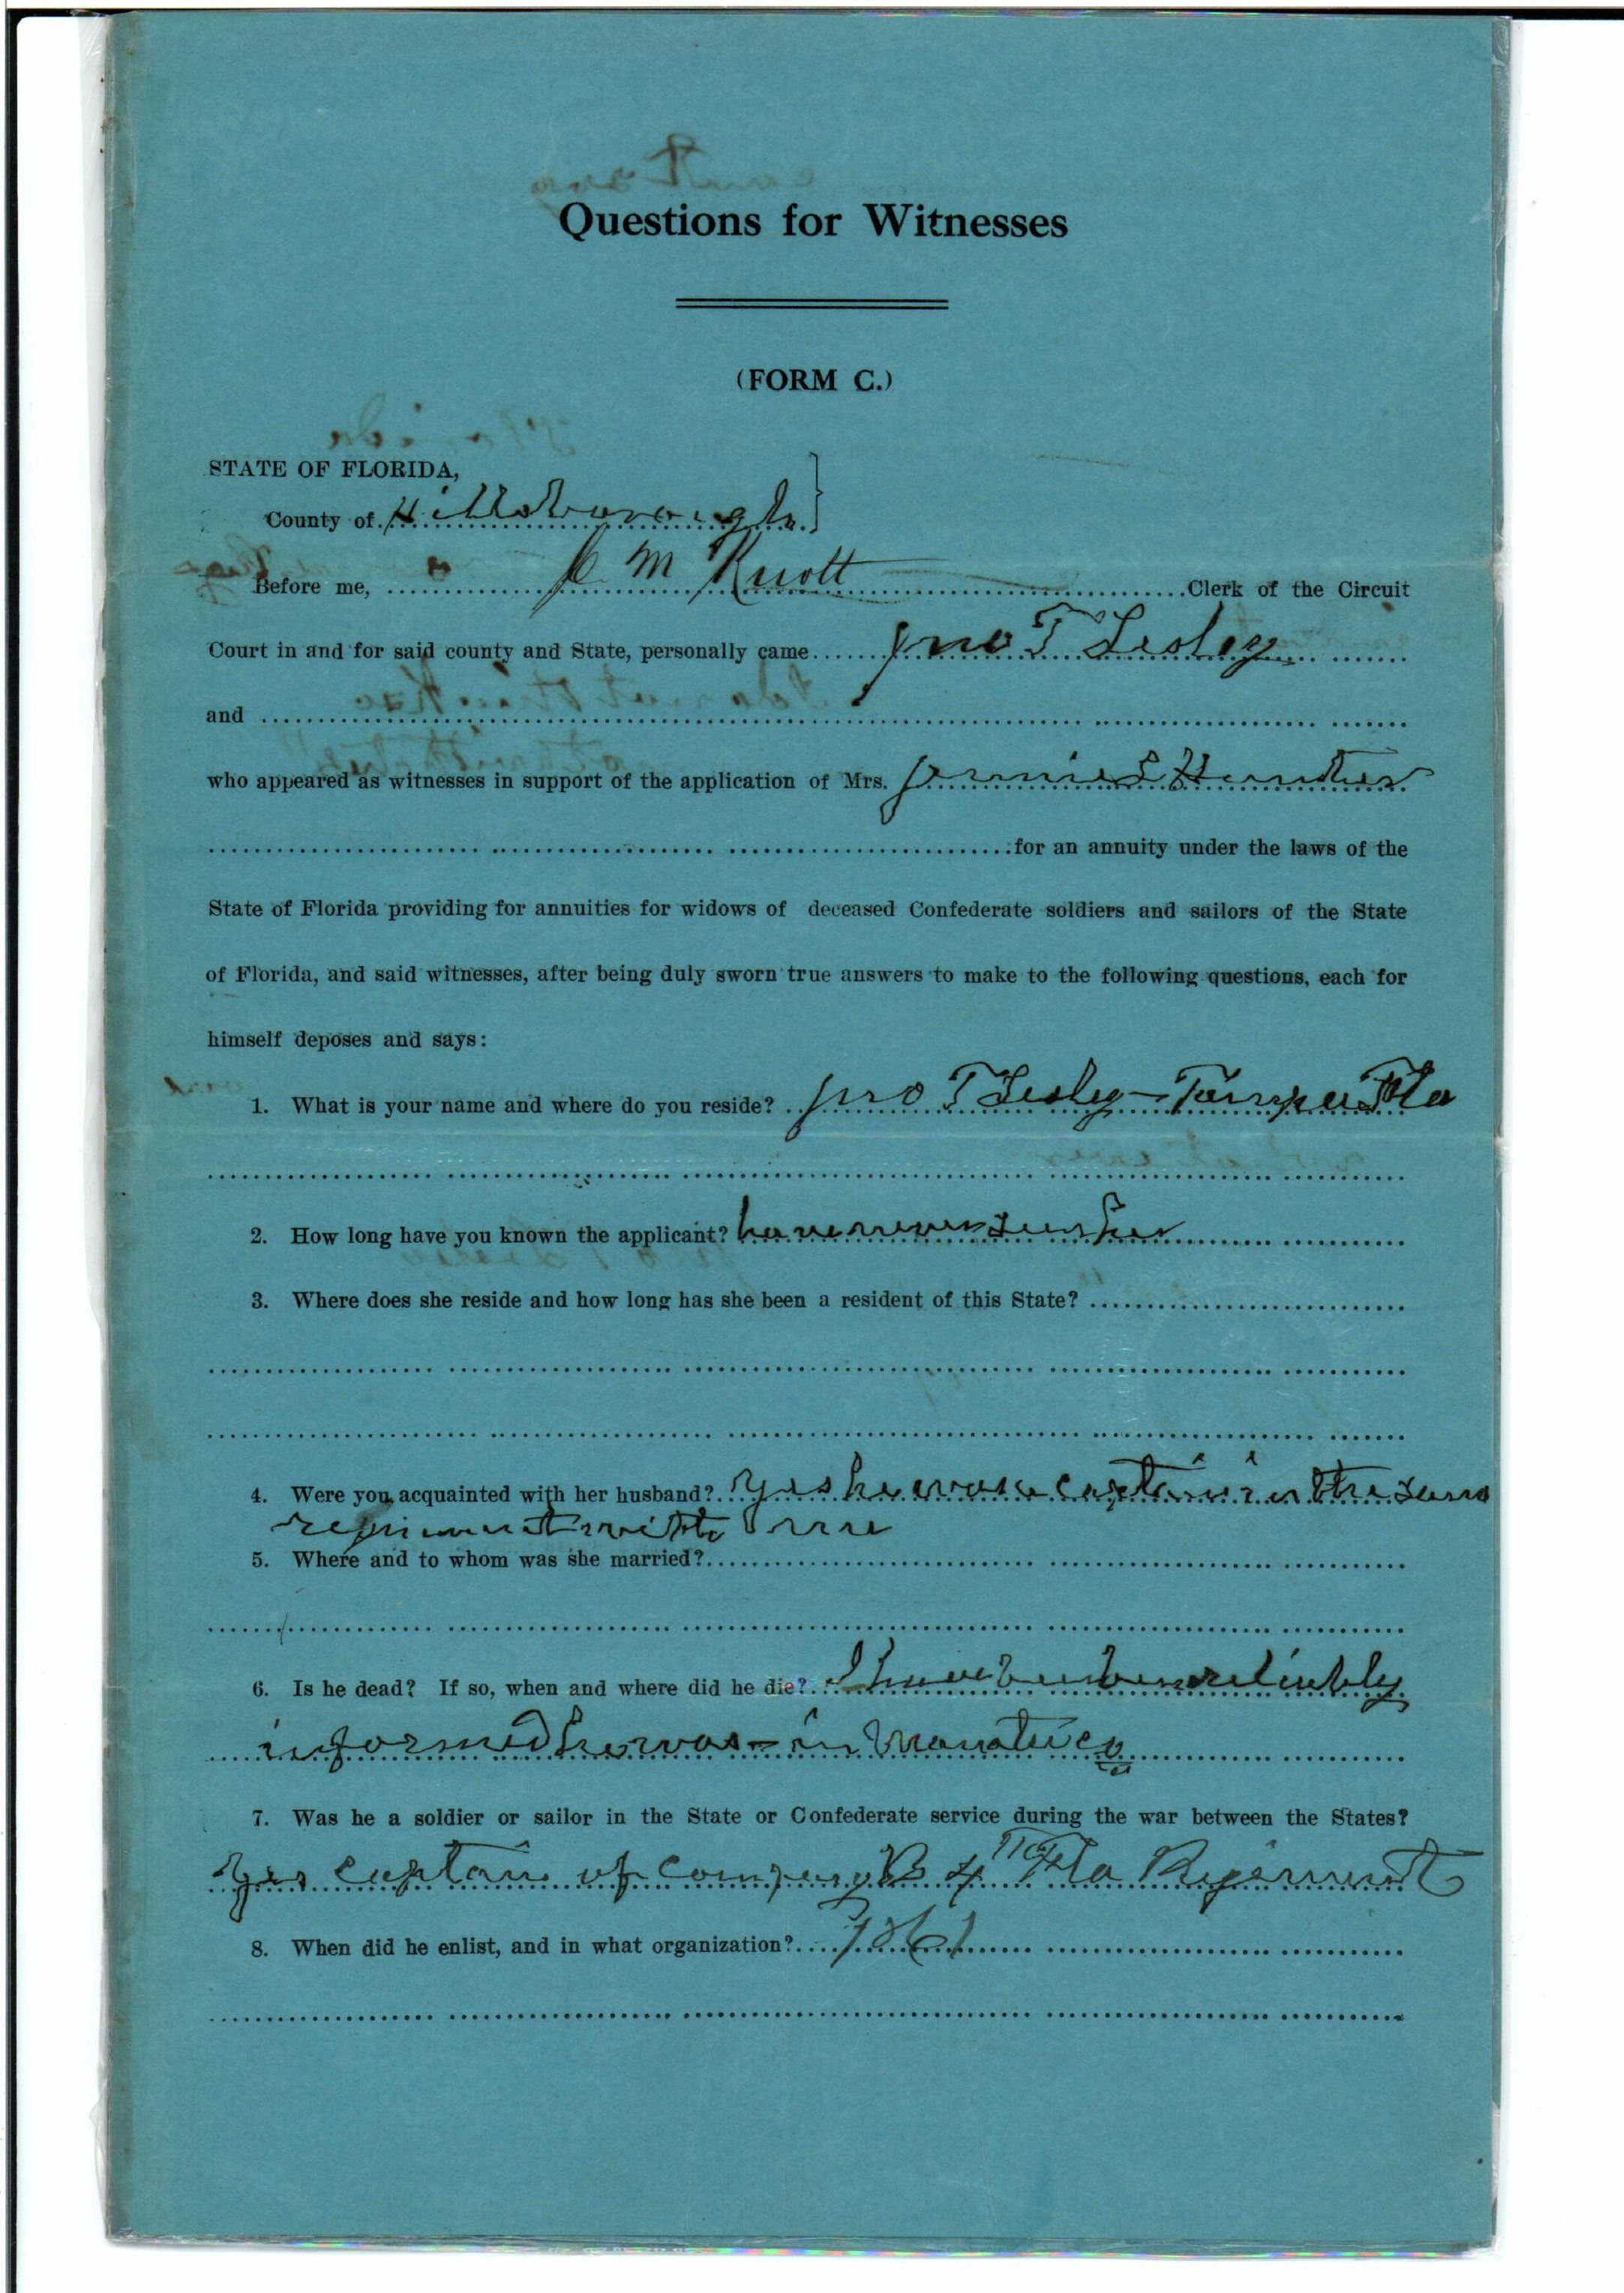 Questions for Witnesses
(FORM C.)
STATE OF FLORIDA,
County of Hillsborough
Before me, C M Knott Clerk of the Circuit
Court in and for said county and State, personally came Jno T Lesley
and
who appeared as witnesses in support of the application of Mrs. Jennie L Hunter
for an annuity under the laws of the
State of Florida providing for annuities for widows of deceased Confederate soldiers and sailors of the State
of Florida, and said witnesses, after being duly sworn true answers to make to the following questions, each for
himself deposes and says:
1. What is your name and where do you reside? Jno T Lesley – Tampa Fla
2. How long have you known the applicant? have never seen her
3. Where does she reside and how long has she been a resident of this State?
4. Were you acquainted with her husband? Yes he was a captain in the same
regiment with me
5. Where and to whom was she married?
6. Is he dead? If so, when and where did he die? I have been reliably
informed he was – in Manatee Co
7. Was he a soldier or sailor in the State or Confederate service during the war between the States?
Yes captain of company B 4 Fla Regiment
8. When did he enlist, and in what organization? 1861